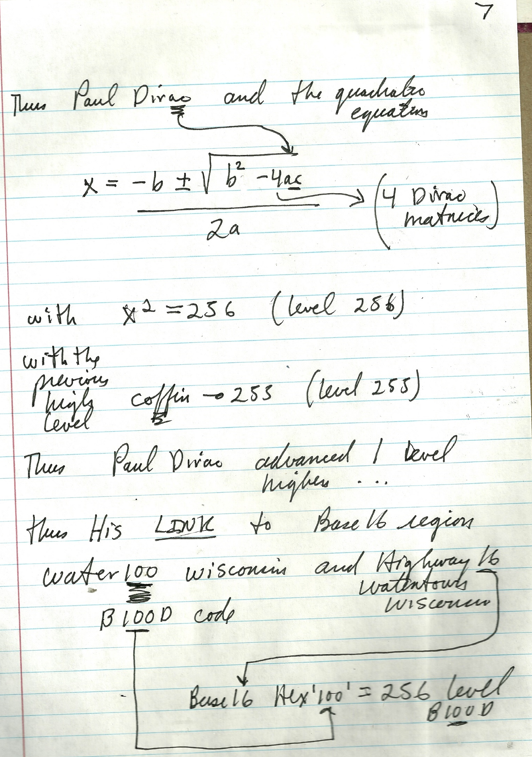 7
Thus Paul Dirac and the quadratic
equation
x = -b ± √b² - 4ac
2a
(4 Dirac
matrices)
with x² = 256 (level 256)
with the
previous
high
level coffin → 255 (level 255)
Thus Paul Dirac advanced 1 level
higher ...
thus His LINK to Base 16 region
water100 wisconsin and Highway 16
watertown
wisconsin
B100D code
Base 16 Hex '100' = 256 level
B100D